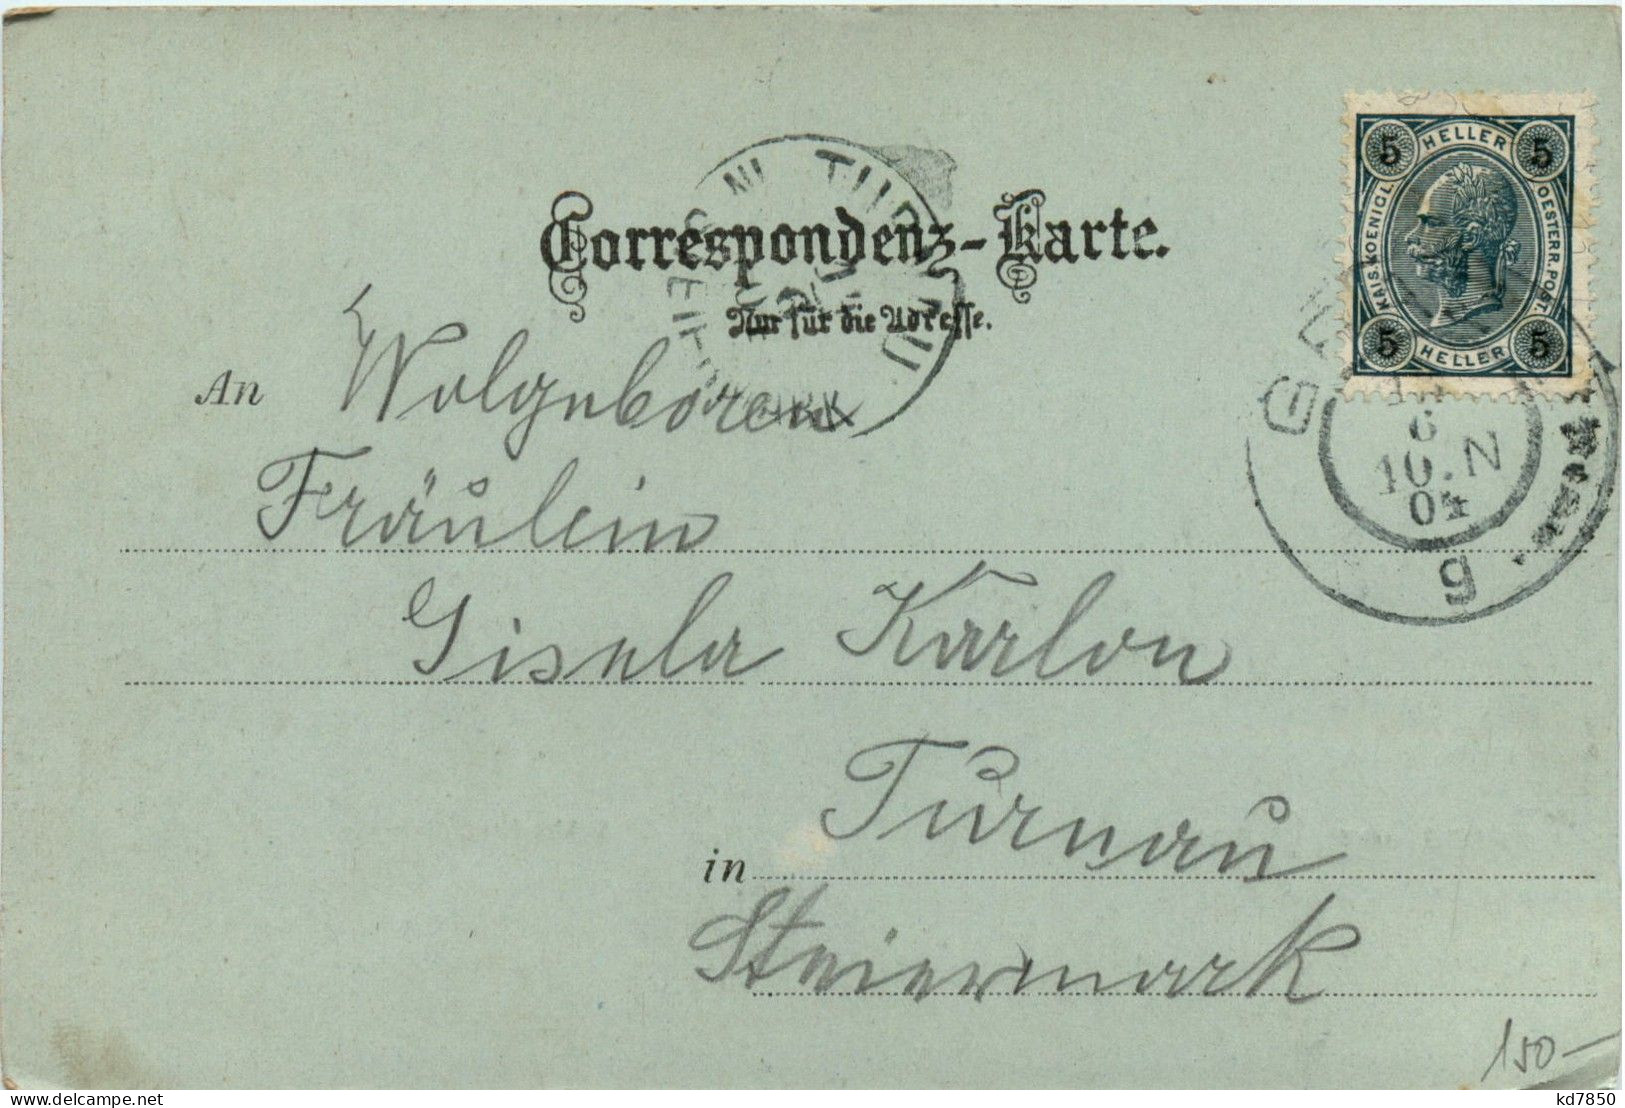 Correspondenz-Karte.
Nur für die Adresse.
5 HELLER 5
KAIS. KOENIGL. OESTERR. POST.
5 HELLER 5
6
10.N
04
g
An Wolgeboren
Fräulein
Gisela Karlon
in Turnau
Steiermark
150-
kd7850